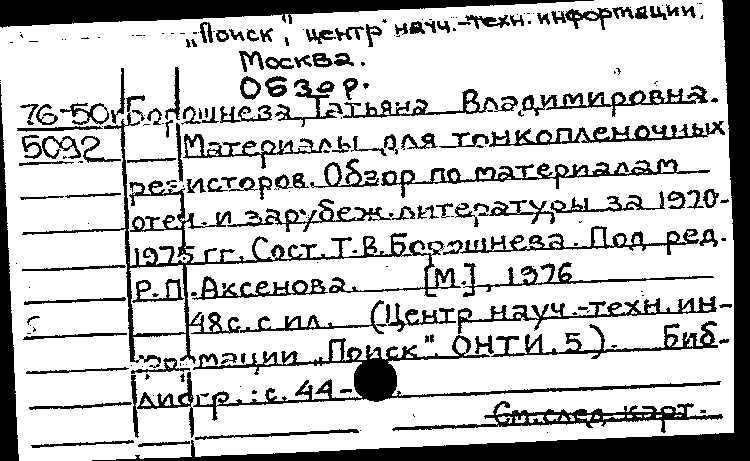 „Поиск", центр науч.-техн. информации.
Москва.
Обзор.
76-50г Борошнева, Татьяна Владимировна.
5092 Материалы для тонкопленочных
резисторов. Обзор по материалам
отеч. и зарубеж. литературы за 1970-
1975 гг. Сост. Т.В. Борошнева. Под ред.
Р.П. Аксенова. [М.], 1976
48 с. с ил. (Центр науч.-техн. ин-
формации „Поиск". ОНТИ. 5). Биб-
лиогр.: с. 44-
См. след. карт.